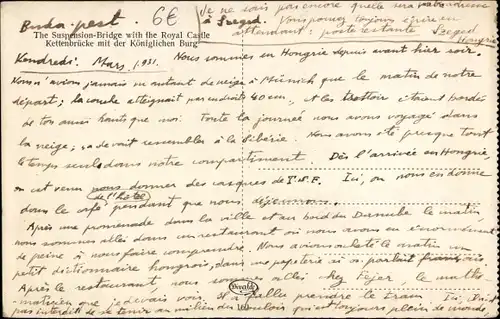 Buda-pest.
6€
Je ne sais pas encore quelle sera
à Szeged. Vous pouvez toujours écrire en
attendant: poste restante Szeged
Hongrie
The Suspension-Bridge with the Royal Castle
Kettenbrücke mit der Königlichen Burg
Vendredi. Mars, 1931. Nous sommes en Hongrie depuis avant hier soir.
Nous n'avions jamais vu autant de neige à Münich que le matin de notre
départ; la couche atteignait par endroits 40 cm, et les trottoirs étaient bordés
de tas aussi hauts que moi. Toute la journée nous avons voyagé dans
la neige; ça devait ressembler à la Sibérie. Nous avons été presque tout
le temps seuls dans notre compartiment. Dès l'arrivée en Hongrie,
on est venu nous donner des casques de T.S.F. Ici, on nous en donne
de l'hôtel
dans le café pendant que nous déjeunons.
Après une promenade dans la ville et au bord du Danube le matin,
nous sommes allés dans un restaurant où nous avons eu énormément
de peine à nous faire comprendre. Nous avions acheté le matin un
petit dictionnaire hongrois, dans une papeterie où on parlait français.
Après le restaurant, nous sommes allés chez Fejer, le mathé-
maticien que je devais voir. Il a fallu prendre le tram. Ici, il n'est
pas interdit de se tenir au milieu des
toujours plein de monde,
Divald